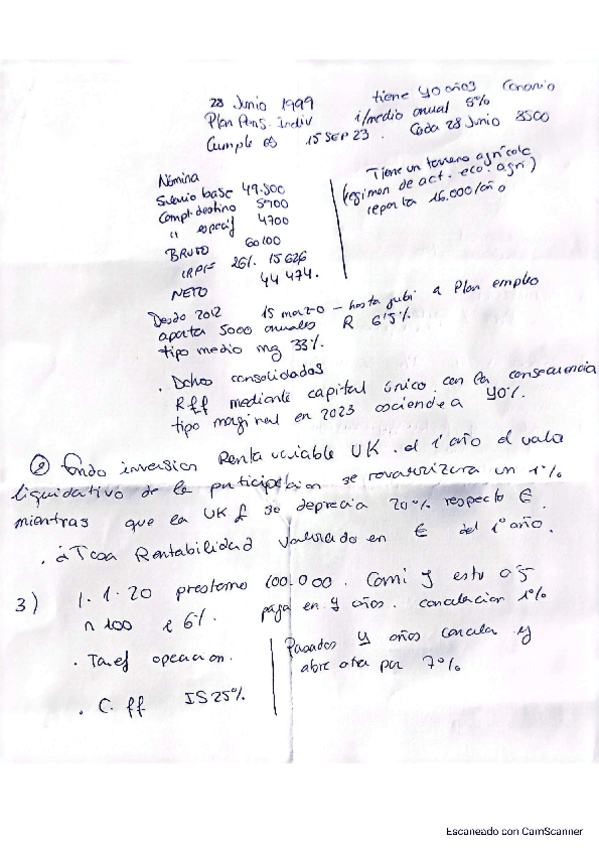 28 Junio 1999 tiene 40 años Canario
Plan Pens. Indiv i/medio anual 5%
Cumple 65 15 SEP 23. Cada 28 Junio 8500
Nómina
Salario base 49.500
Compl. destino 5900
" especif 4700
BRUTO 60100
IRPF 26%. 15626
NETO 44474.
Tiene un terreno agrícola
(regimen de act. eco. agri)
reporta 16.000/año
Desde 2012 15 marzo - hasta jubi a Plan empleo
aporta 5000 anuales R 6'5%
tipo medio mg 33%.
. Dchos consolidados
Rff mediante capital único con la consecuencia
tipo marginal en 2023 asciende a 40%.
② Fondo inversion Renta variable UK. el 1º año el valor
liquidativo de la participacion se revalorizara un 1%
mientras que la UK £ se deprecia 20% respecto €
. ¿Tasa Rentabilidad valorado en € del 1º año.
3) 1.1.20 prestamo 100.000. Comi y estu 0'5
n 100 i 6% paga en 4 años. cancelacion 1%
. Taref operacion.
. C. ff IS 25%
Pasados 4 años cancela y
abre otra por 7%
Escaneado con CamScanner